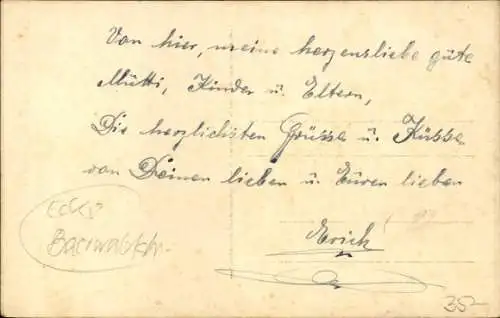 Von hier, meine herzensliebe gute
Mutti, Kinder u. Eltern,
Die herzlichsten Grüsse u. Küsse
von Deinen lieben u. Euren lieben
Erich
Ecke
35-